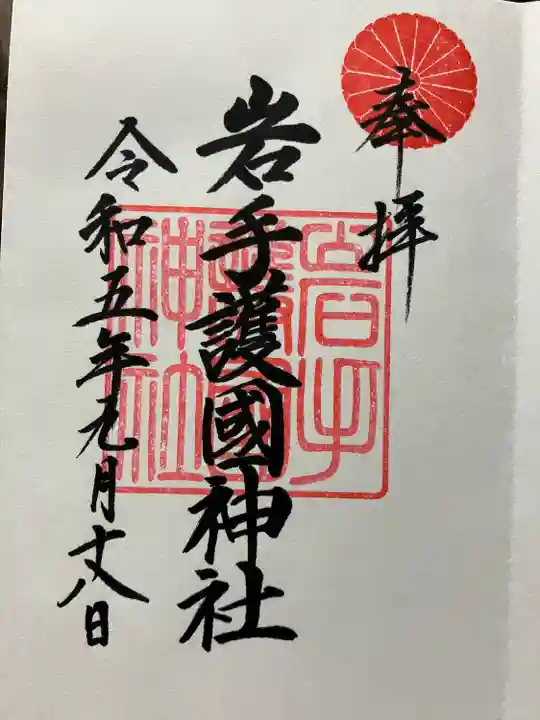 奉拝
岩手護國神社
令和五年元月十八日
岩手
護國
神社